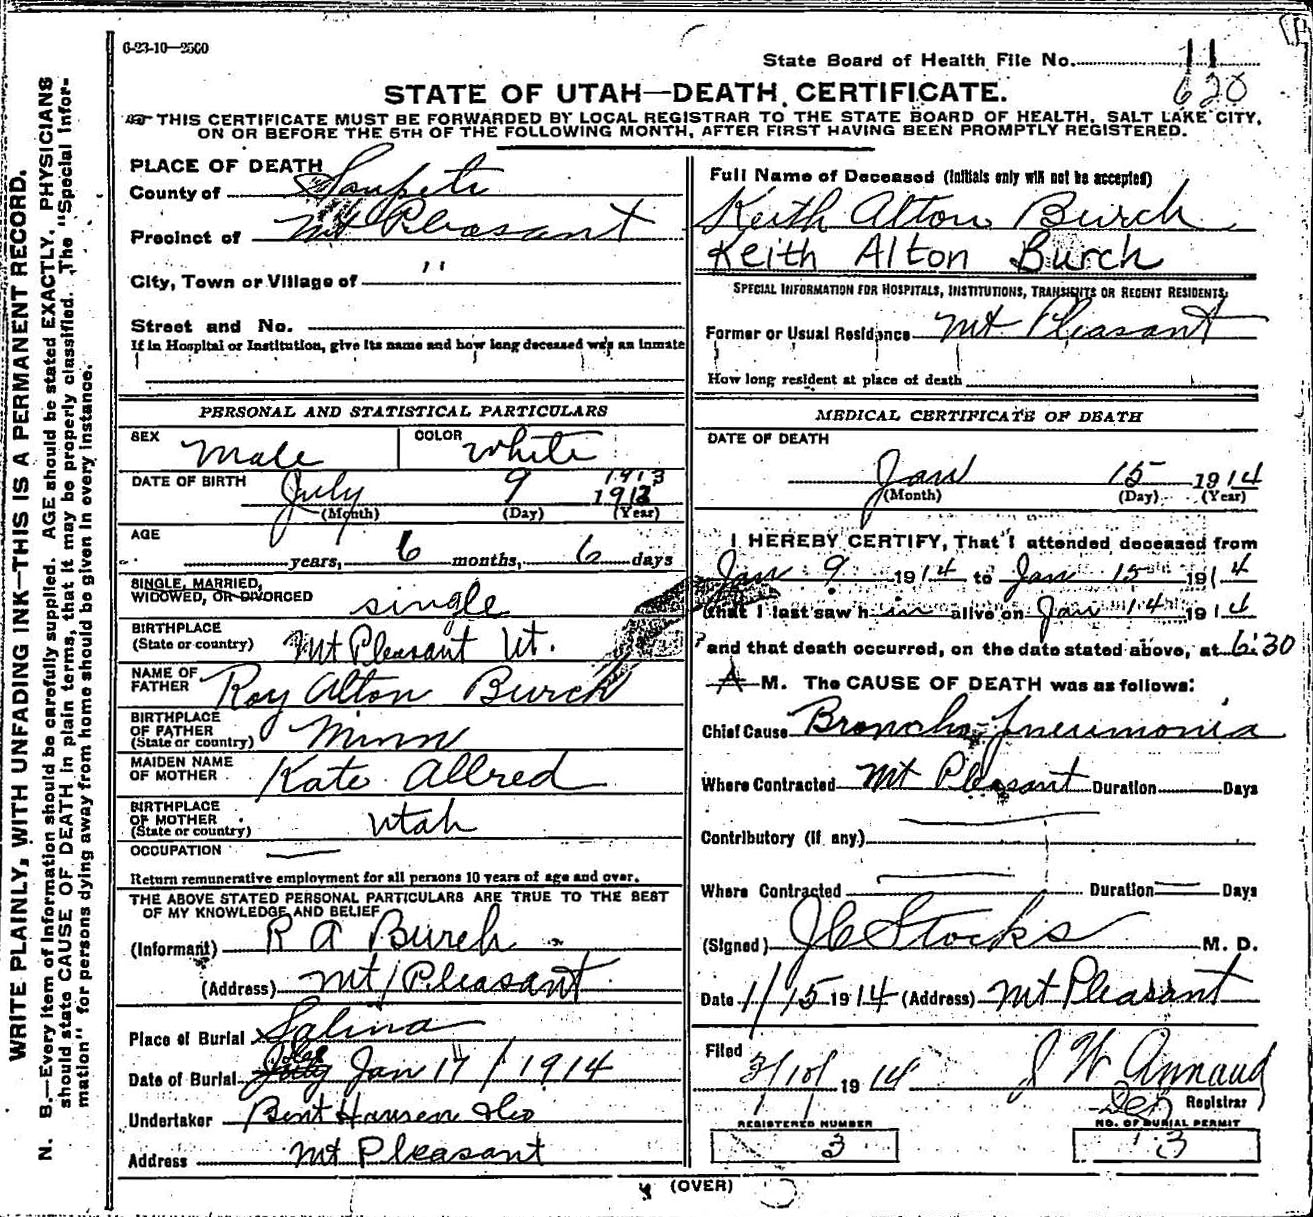 6-23-10—2500
State Board of Health File No. 11
620
STATE OF UTAH—DEATH CERTIFICATE.
THIS CERTIFICATE MUST BE FORWARDED BY LOCAL REGISTRAR TO THE STATE BOARD OF HEALTH, SALT LAKE CITY,
ON OR BEFORE THE 5TH OF THE FOLLOWING MONTH, AFTER FIRST HAVING BEEN PROMPTLY REGISTERED.
WRITE PLAINLY, WITH UNFADING INK—THIS IS A PERMANENT RECORD.
N. B.—Every item of information should be carefully supplied. AGE should be stated EXACTLY. PHYSICIANS
should state CAUSE OF DEATH in plain terms, that it may be properly classified. The "Special Infor-
mation" for persons dying away from home should be given in every instance.
PLACE OF DEATH
County of Sanpete
Precinct of Mt Pleasant
City, Town or Village of "
Street and No.
If in Hospital or Institution, give its name and how long deceased was an inmate
PERSONAL AND STATISTICAL PARTICULARS
SEX Male COLOR White
DATE OF BIRTH July 9 1913
1912
(Month) (Day) (Year)
AGE
years, 6 months, 6 days
SINGLE, MARRIED,
WIDOWED, OR DIVORCED single
BIRTHPLACE
(State or country) Mt Pleasant Ut.
NAME OF
FATHER Roy Alton Burch
BIRTHPLACE
OF FATHER
(State or country) Minn
MAIDEN NAME
OF MOTHER Kate Allred
BIRTHPLACE
OF MOTHER
(State or country) Utah
OCCUPATION
Return remunerative employment for all persons 10 years of age and over.
THE ABOVE STATED PERSONAL PARTICULARS ARE TRUE TO THE BEST
OF MY KNOWLEDGE AND BELIEF
(Informant) R A Burch
(Address) Mt Pleasant
Place of Burial Salina
Date of Burial Jan 17 / 1914
Undertaker Bent Hansen &Co
Address Mt Pleasant
Full Name of Deceased (Initials only will not be accepted)
Keith Alton Burch
Keith Alton Burch
SPECIAL INFORMATION FOR HOSPITALS, INSTITUTIONS, TRANSIENTS OR RECENT RESIDENTS.
Former or Usual Residence Mt Pleasant
How long resident at place of death
MEDICAL CERTIFICATE OF DEATH
DATE OF DEATH
Jan 15 1914
(Month) (Day) (Year)
I HEREBY CERTIFY, That I attended deceased from
Jan 9 1914 to Jan 15 1914
that I last saw him alive on Jan 14 1914
and that death occurred, on the date stated above, at 6:30
A M. The CAUSE OF DEATH was as follows:
Chief Cause Broncho-pneumonia
Where Contracted Mt Pleasant Duration Days
Contributory (if any)
Where Contracted Duration Days
(Signed) J C Stocks M. D.
Date 1/15 1914 (Address) Mt Pleasant
Filed
3/10/ 1914 J W Annaud
Dep Registrar
REGISTERED NUMBER
3
NO. OF BURIAL PERMIT
3
(OVER)